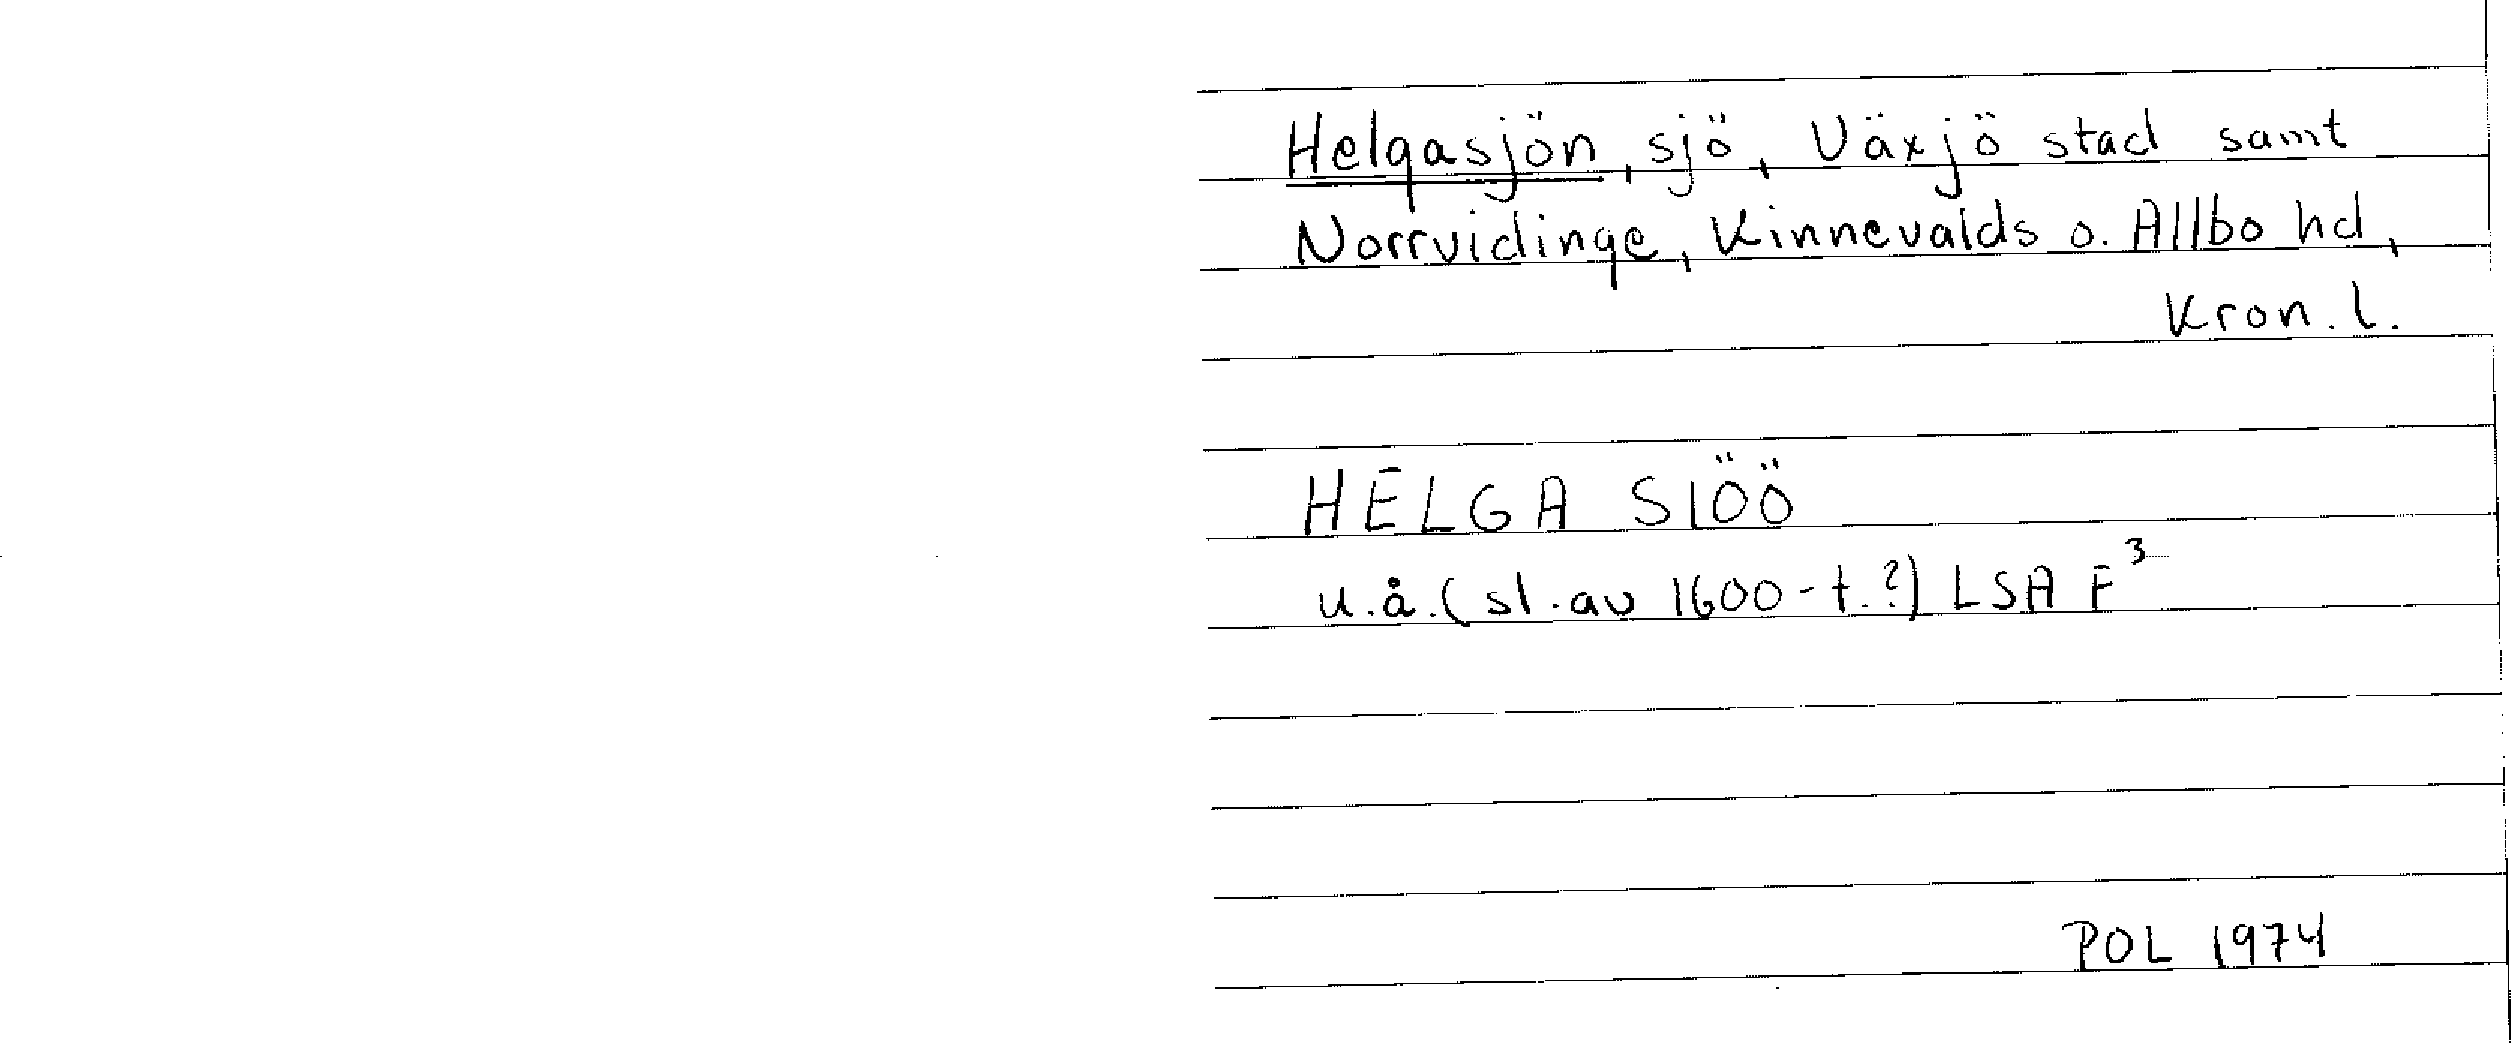 Helgasjön, sjö, Växjö stad samt
Norrvidinge, Kinnevalds o. Allbo hd,
Kron. l.
HELGA SIÖÖ
u.å. (sl. av 1600-t.?) LSA F³
POL 1974